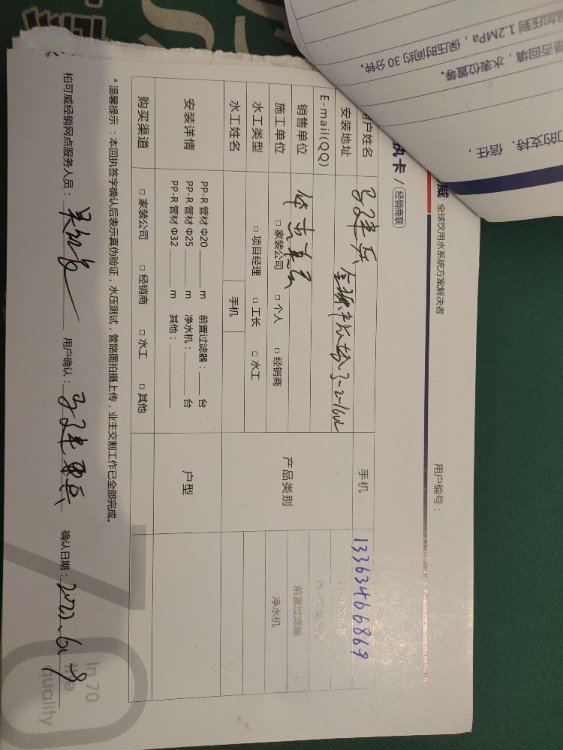 增加压到 1.2MPa，保压时间约 30 分钟。
是否回填，水表位置等。
的支持、信任，
威 全球饮用水系统方案解决者
用户编号：
执卡 / 经销商联
户姓名 手机 13363466869
安装地址 3-2-1602
E-mail(QQ)
销售单位 产品类别 前置过滤器
施工单位 □ 家装公司 □ 个人 □ 经销商 净水机
水工类型 □ 项目经理 □ 工长 □ 水工
水工姓名 手机
安装详情 PP-R 管材 Φ20 m 前置过滤器： 台 户型
PP-R 管材 Φ25 m 净水机： 台
PP-R 管材 Φ32 m 其他：
购买渠道 □ 家装公司 □ 经销商 □ 水工 □ 其他
*温馨提示：本回执签字确认后表示真伪验证，水压测试，管路图拍摄上传，业主交割工作已全部完成。
柏可威经销网点服务人员： 用户确认： 确认日期：
In 70
quality